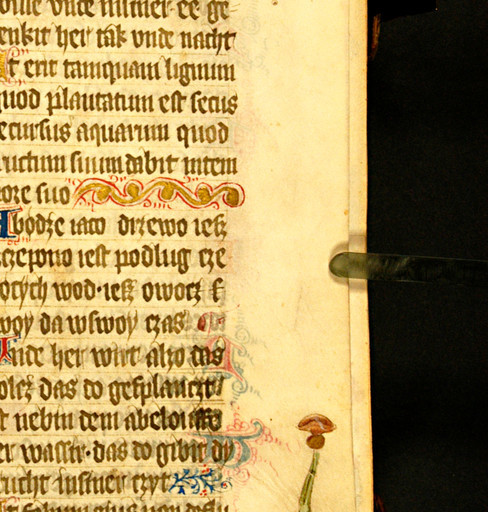 wille vnde mitner ee ge
enkit her tak vnde nacht
Et erit tamquam lignum
quod plantatum est secus
decursus aquarum quod
fructum suum dabit in tem
pore suo
A bodze iaco drzewo iesz
szczepono iest podlug cze
kocych wod · iesz owocz s
woy da w swoy czas
Vnde her wirt also das
holcz das do gesplanczt
ist nebin dem abelouffe
der wassir · das do gibit dy
frucht in siner czyt